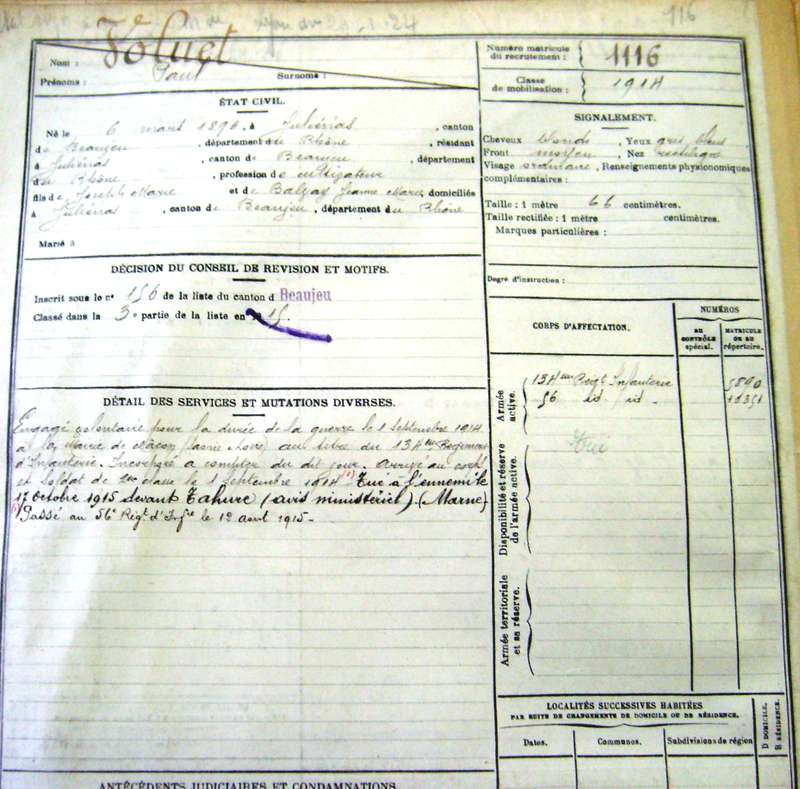 116
Nom : Voluet
Prénoms : Paul Surnoms :
Numéro matricule du recrutement : 1116
Classe de mobilisation : 1914
ÉTAT CIVIL.
Né le 6 mars 1896, à Juliénas, canton
de Beaujeu, département du Rhône, résidant
à Juliénas, canton de Beaujeu, département
du Rhône, profession de cultivateur
fils de Joseph Marie et de Balzay Jeanne Marie, domiciliés
à Juliénas, canton de Beaujeu, département du Rhône
Marié à
SIGNALEMENT.
Cheveux blonds, Yeux gris bleus
Front moyen, Nez rectiligne
Visage ordinaire, Renseignements physionomiques
complémentaires :
Taille : 1 mètre 66 centimètres.
Taille rectifiée : 1 mètre centimètres.
Marques particulières :
Degré d'instruction :
DÉCISION DU CONSEIL DE REVISION ET MOTIFS.
Inscrit sous le n° 156 de la liste du canton d Beaujeu
Classé dans la 3e partie de la liste en 15.
DÉTAIL DES SERVICES ET MUTATIONS DIVERSES.
Engagé volontaire pour la durée de la guerre le 1 Septembre 1914
à la Mairie de Mâcon (Saône & Loire) au titre du 134me Régiment
d'Infanterie. Incorporé à compter du dit jour. Arrivé au corps
et soldat de 2me classe le 1 Septembre 1914 (1) Tué à l'ennemi le
17 Octobre 1915 devant Tahure (avis ministériel). (Marne)
(1) Passé au 56e Régt d'Infie le 12 août 1915 -
CORPS D'AFFECTATION.
NUMÉROS
AU CONTRÔLE spécial.
MATRICULE OU AU répertoire.
Armée active.
134me Régt Infanterie 5890
56 id id -
Tué
Disponibilité et réserve de l'armée active.
Armée territoriale et sa réserve.
LOCALITÉS SUCCESSIVES HABITÉES
PAR SUITE DE CHANGEMENTS DE DOMICILE OU DE RÉSIDENCE.
Dates. Communes. Subdivisions de région
D DOMICILE.
R RÉSIDENCE.
ANTÉCÉDENTS JUDICIAIRES ET CONDAMNATIONS.